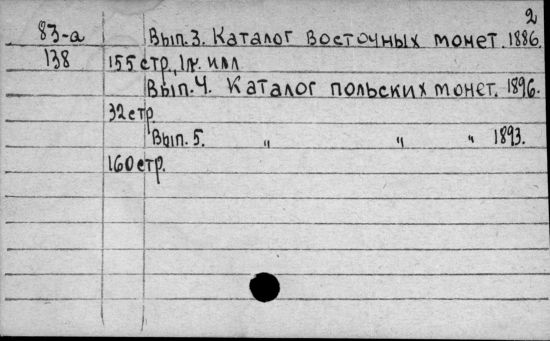 2
83-а Вып.3. Каталог восточных монет. 1886.
138 155 стр., 1л. илл
Вып.4. Каталог польских монет. 1896.
32 стр.
Вып. 5. " " " 1893.
160 стр.